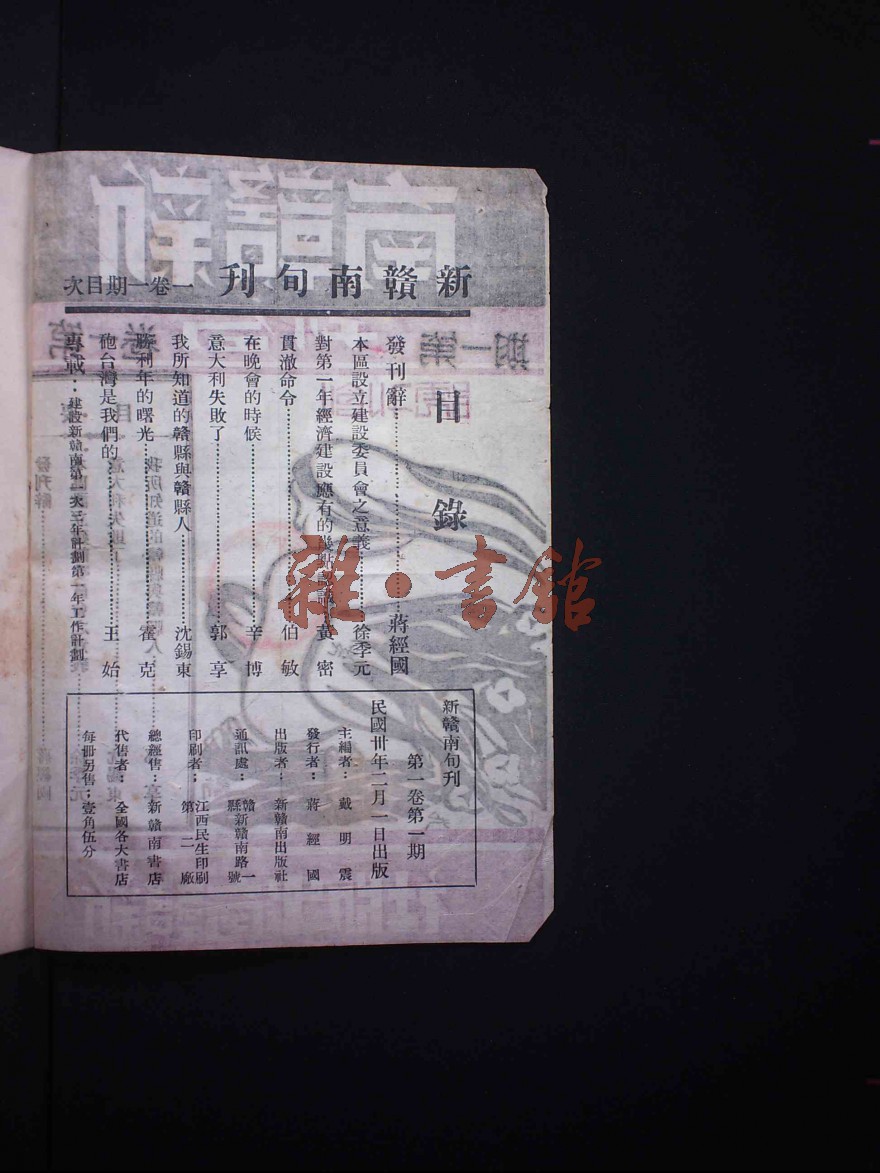 新贛南旬刊 一卷一期目次
目錄
發刊辭……蔣經國
本區設立建設委員會之意義……徐季元
對第一年經濟建設應有的幾點認識……黃密
貫澈命令……伯敏
在晚會的時候……辛博
意大利失敗了……郭享
我所知道的贛縣與贛縣人……沈錫東
勝利年的曙光……霍克
砲台灣是我們的……王始
專載：建設新贛南第一次三年計劃第一年工作計劃
新贛南旬刊
第一卷第一期
民國卅年二月一日出版
主編者：戴明震
發行者：蔣經國
出版者：新贛南出版社
通訊處：贛縣新贛南路一號
印刷者：江西民生印刷第二廠
總經售：新贛南書店
代售者：全國各大書店
每冊另售：壹角伍分
雜·書館